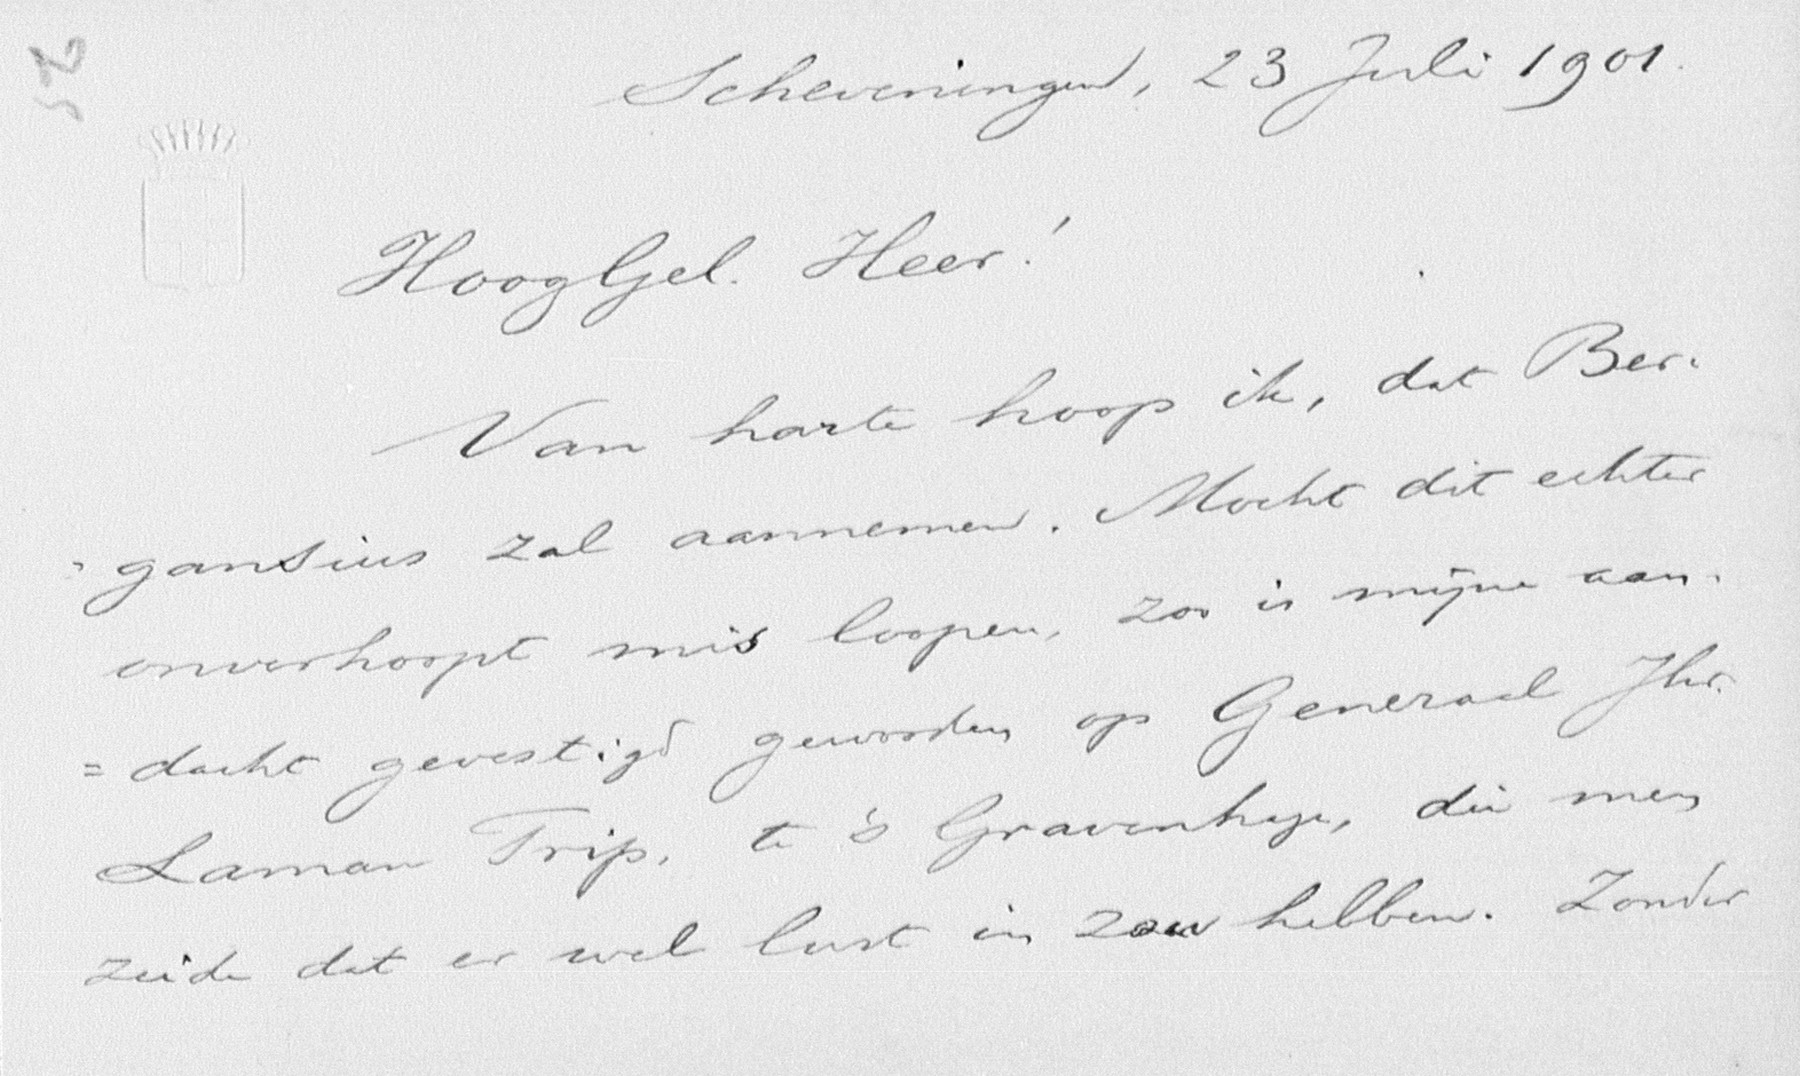 52
Scheveningen, 23 Juli 1901.
HoogGel. Heer!
Van harte hoop ik, dat Ber-
-gansius zal aannemen. Mocht dit echter
onverhoopt mis loopen, zoo is mijne aan-
=dacht gevestigd geworden op Generaal Jhr.
Laman Trip, te 's Gravenhage, die men
zeide dat er wel lust in zou hebben. Zonder